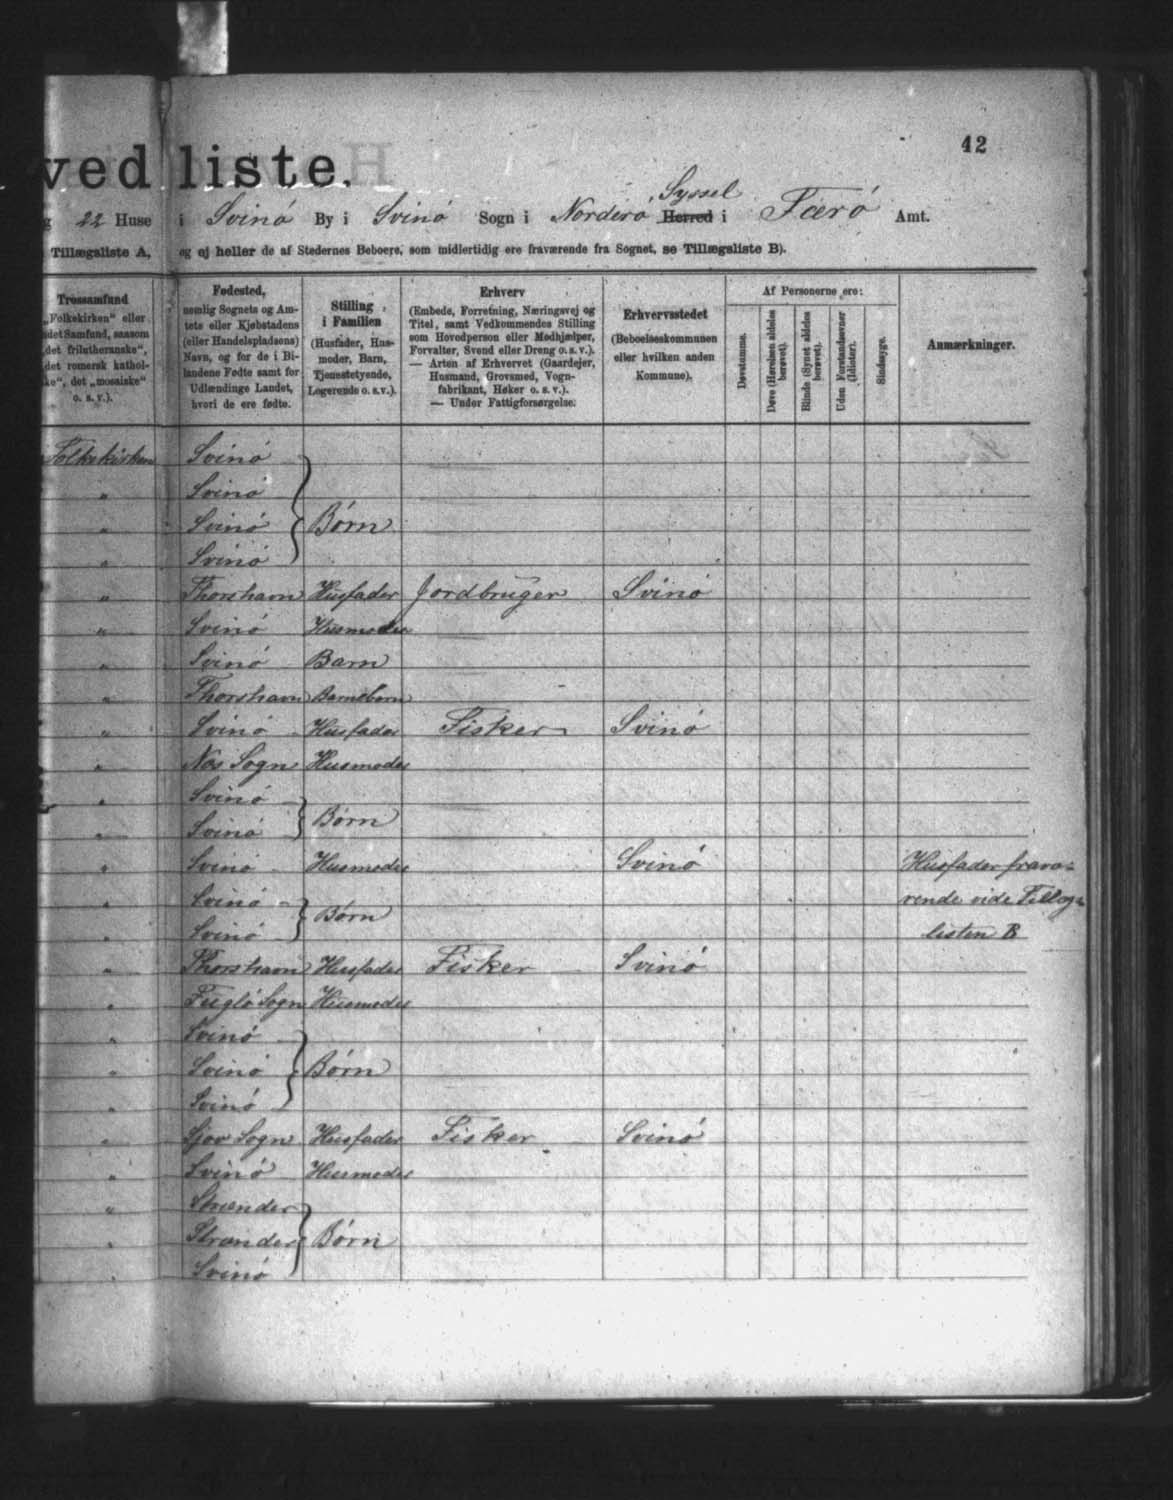 42
ved liste.
g 22 Huse i Svinó By i Svinó Sogn i Norderó Syssel Herred i Færó Amt.
Tillægsliste A, og ej heller de af Stedernes Beboere, som midlertidig ere fraværende fra Sognet, se Tillægsliste B).
Trossamfund
„Folkekirken“ eller
det Samfund, saasom
„det frilutheranske“,
det romersk kathol-
ke“, det „mosaiske“
o. s. v.).
Fødested,
nemlig Sognets og Am-
tets eller Kjøbstadens
(eller Handelspladsens)
Navn, og for de i Bi-
landene Fødte samt for
Udlændinge Landet,
hvori de ere fødte.
Stilling
i Familien
(Husfader, Hus-
moder, Barn,
Tjenestetyende,
Logerende o. s. v.).
Erhverv
(Embede, Forretning, Næringsvej og
Titel, samt Vedkommendes Stilling
som Hovedperson eller Medhjælper,
Forvalter, Svend eller Dreng o. s. v.).
— Arten af Erhvervet (Gaardejer,
Husmand, Grovsmed, Vogn-
fabrikant, Høker o. s. v.).
— Under Fattigforsørgelse.
Erhvervsstedet
(Beboelseskommunen
eller hvilken anden
Kommune).
Af Personerne ere:
Døvstumme.
Døve (Hørelsen aldeles
berøvet).
Blinde (Synet aldeles
berøvet).
Uden Forstandsevner
(Idioter).
Sindssyge.
Anmærkninger.
Folkekirken Svinó
„ Svinó
„ Svinó Børn
„ Svinó
„ Thorshavn Husfader Jordbruger Svinó
„ Svinó Husmoder
„ Svinó Barn
„ Thorshavn Barnebarn
„ Svinó Husfader Fisker Svinó
„ Nos Sogn Husmoder
„ Svinó
„ Svinó Børn
„ Svinó Husmoder Svinó Husfader fravæ-
„ Svinó Børn rende vide Tillægs-
„ Svinó listen B
„ Thorshavn Husfader Fisker Svinó
„ Fugló Sogn Husmoder
„ Svinó
„ Svinó Børn
„ Svinó
„ Sjov Sogn Husfader Fisker Svinó
„ Svinó Husmoder
„ Strænder
„ Strænder Børn
„ Svinó